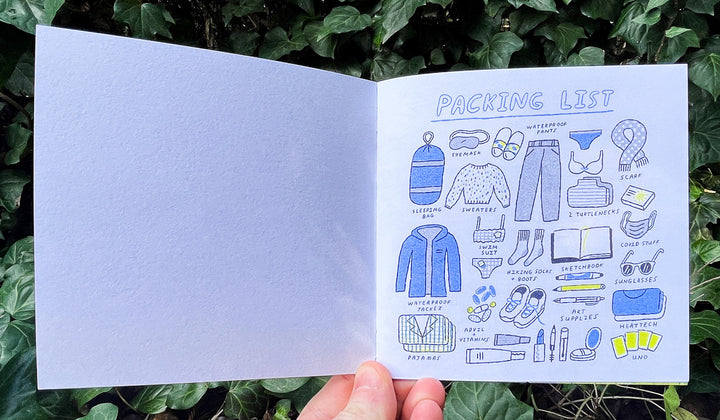 PACKING LIST
WATERPROOF
PANTS
EYEMASK
SCARF
SLEEPING
BAG
SWEATERS
2 TURTLENECKS
SWIM
SUIT
COVID STUFF
HIKING SOCKS
+ BOOTS
SKETCHBOOK
SUNGLASSES
WATERPROOF
JACKET
ART
SUPPLIES
HEATTECH
ADVIL
+
VITAMINS
PAJAMAS
UNO